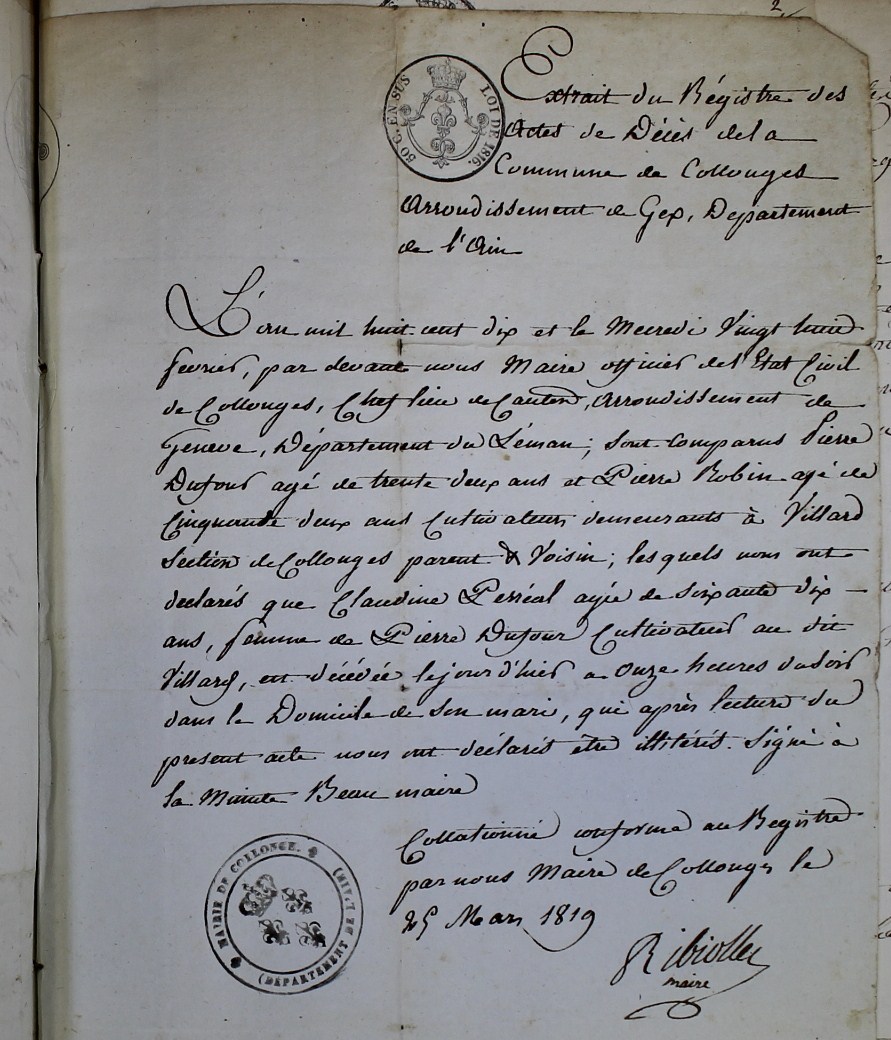 2
50 C. EN SUS
LOI DE 1816.
Extrait du Régistre des
Actes de Décès de la
Commune de Collonges
Arrondissement de Gex, Departement
de l'Ain
L'an mil huit cent dix et le Mecredi Vingt huit
fevrier, par devant nous Maire officier de l'Etat Civil
de Collonges, Chef lieu de Canton, Arrondissement de
Geneve, Département du Léman; sont comparus Pierre
Dufour agé de trente deux ans et Pierre Robin agé de
Cinquante deux ans Cultivateurs demeurants à Villard
Section de Collonges parent & Voisin; lesquels nous ont
declarés que Claudine Perréal agée de soixante dix —
ans, femme de Pierre Dufour Cultivateur au dit
Villard, est décédée le jour d'hier a Onze heures du soir
dans le Domicile de son mari, qui après lecture du
present acte nous ont déclarés être illitérés. Signé à
la Minute Beau maire
Collationné conforme au Registre
par nous Maire de Collonges le
25 Mars 1819
Ribiollet
maire
MAIRIE DE COLLONGE.
(DÉPARTEMENT DE L'AIN)